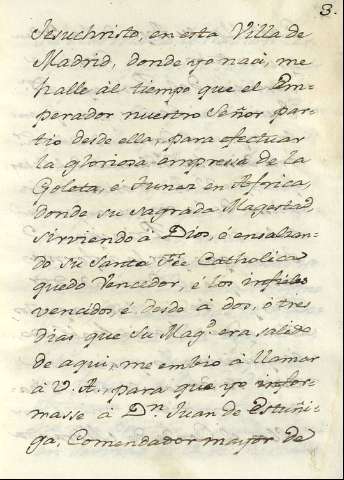 3.
Jesuchristo, en esta Villa de
Madrid, donde yo naci, me
halle àl tiempo que el Em-
perador nuestro Señor par-
tio desde ella, para efectuar
la gloriosa empresa de la
Goleta, é Tunez en Africa,
donde su sagrada Magestad,
sirviendo à Dios, é ensalzan-
do su Santa Fée Catholica
quedo Vencedor, é los infieles
vencidos é desde à dos, ó tres
dias que Su Mag.d era salido
de aqui, me embio à llamar
à V. A. para que yo infor-
masse à D.n Juan de Estuñi-
ga, Comendador mayor de